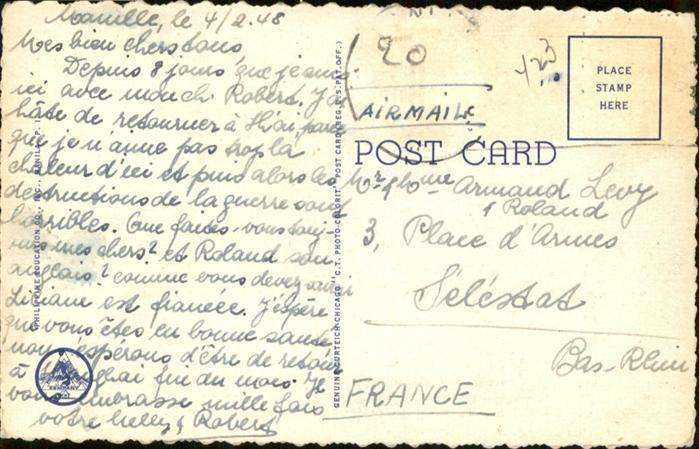 Manille, le 4/2.48
Mes bien chers tous
Depuis 8 jours que je suis
ici avec mon ch. Robert. J'ai
hâte de retourner à parce
que je n'aime pas trop la
chaleur d'ici et puis alors les
destructions de la guerre sont
horribles. Que faites-vous tou-
jours mes chers? et Roland son
anglais? comme vous devez savoir
Liliane est fiancée. J'espère
que vous êtes en bonne santé
nous espérons d'être de retour
à fin du mois. Je
vous embrasse mille fois
votre Nelly & Robert
PHILIPPINE EDUCATION CO., INC., MANILA, P.
COMPANY
GENUINE CURTEICH-CHICAGO "C.T. PHOTO-COLORIT" POST CARD (REG. U.S. PAT. OFF.)
20
423
AIRMAIL
PLACE
STAMP
HERE
POST CARD
Mr & Mme Armand Levy
& Roland
3, Place d'Armes
Séléstat
Bas-Rhin
FRANCE